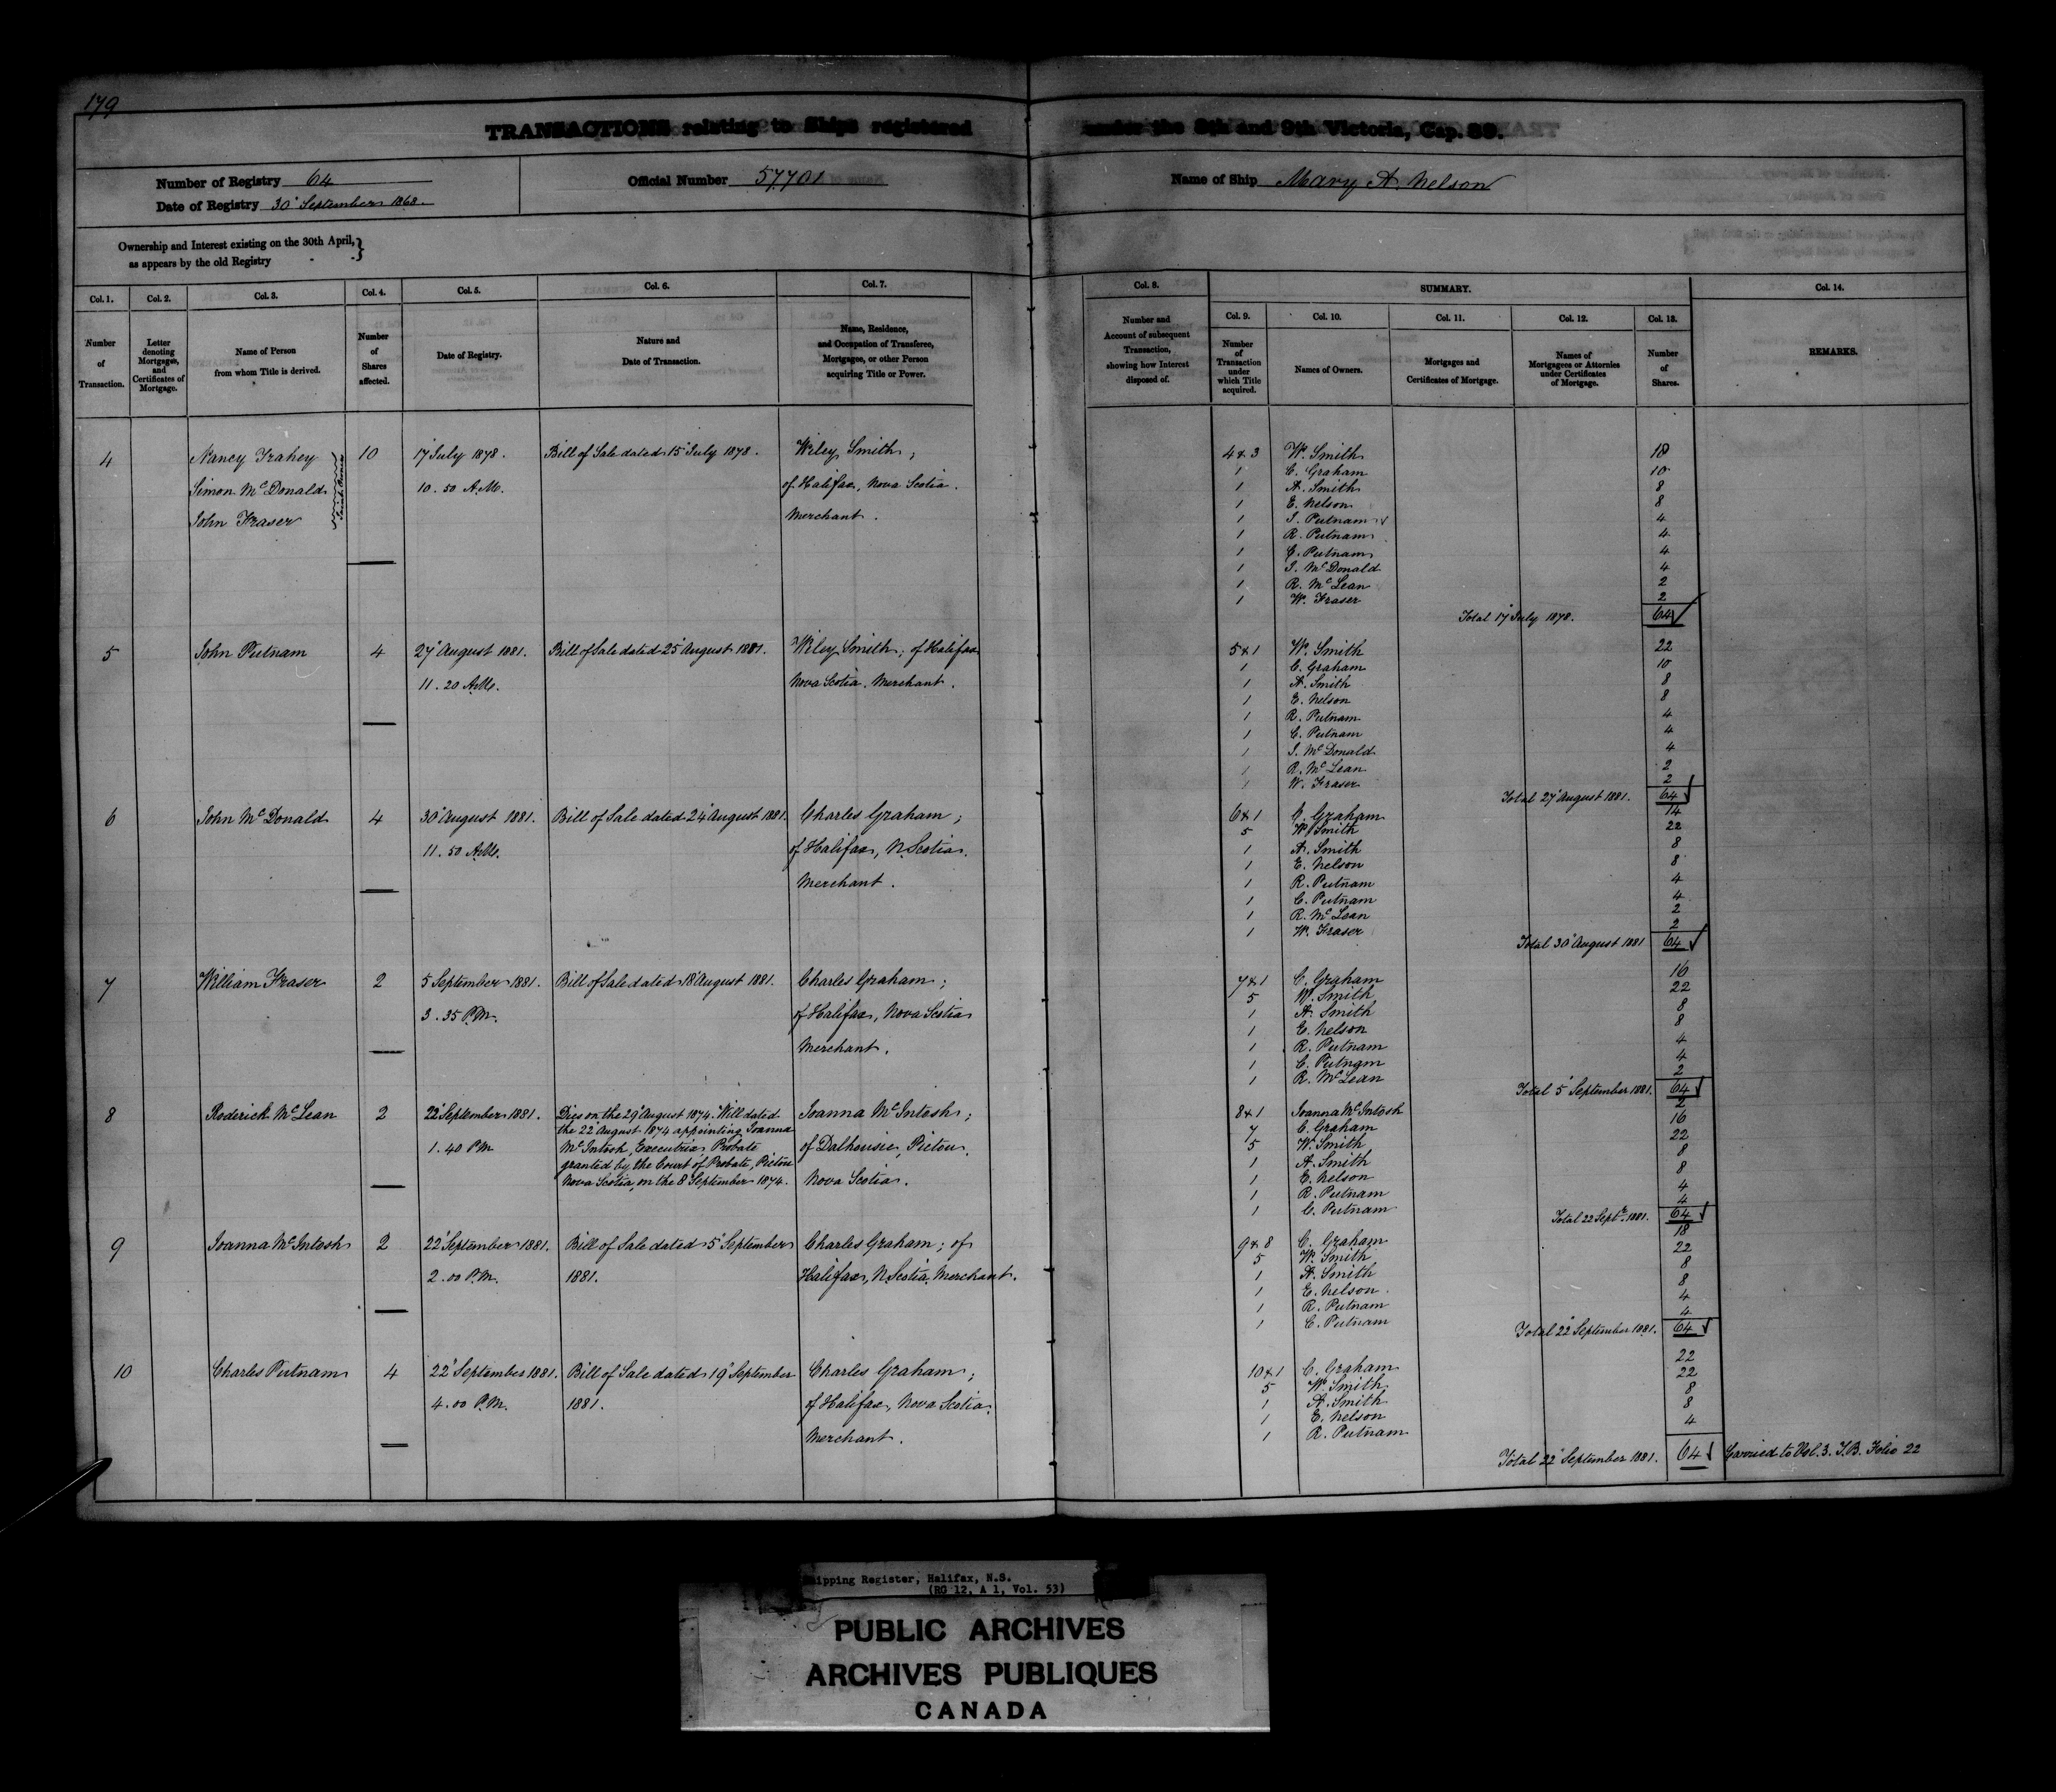 179
TRANSACTIONS relating to Ships registered under the 8th and 9th Victoria, Cap. 89.
Number of Registry 64
Date of Registry 30 September 1868.
Official Number 57701
Name of Ship Mary A. Nelson
Ownership and Interest existing on the 30th April, as appears by the old Registry
Col. 1. Col. 2. Col. 3. Col. 4. Col. 5. Col. 6. Col. 7. Col. 8. SUMMARY. Col. 14.
Col. 9. Col. 10. Col. 11. Col. 12. Col. 13.
Number of Transaction.
Letter denoting Mortgages, and Certificates of Mortgage.
Name of Person from whom Title is derived.
Number of Shares affected.
Date of Registry.
Nature and Date of Transaction.
Name, Residence, and Occupation of Transferee, Mortgagee, or other Person acquiring Title or Power.
Number and Account of subsequent Transaction, showing how Interest disposed of.
Number of Transaction under which Title acquired.
Names of Owners.
Mortgages and Certificates of Mortgage.
Names of Mortgagees or Attornies under Certificates of Mortgage.
Number of Shares.
REMARKS.
4 Nancy Frahey 10 17 July 1878. Bill of Sale dated 15 July 1878. Wiley Smith,
Simon McDonald 10.50 A.M. of Halifax, Nova Scotia.
John Fraser Merchant.
4 & 3 W. Smith 18
1 C. Graham 10
1 A. Smith 8
1 E. Nelson 8
1 J. Putnam 4
1 R. Putnam 4
1 C. Putnam 4
1 J. McDonald 4
1 R. McLean 2
1 W. Fraser 2
Total 17 July 1878. 64
5 John Putnam 4 27 August 1881. Bill of Sale dated 25 August 1881. Wiley Smith; of Halifax
11.20 A.M. Nova Scotia. Merchant.
5 & 1 W. Smith 22
1 C. Graham 10
1 A. Smith 8
1 E. Nelson 8
1 R. Putnam 4
1 C. Putnam 4
1 J. McDonald 4
1 R. McLean 2
1 W. Fraser 2
Total 27 August 1881. 64
6 John McDonald 4 30 August 1881. Bill of Sale dated 24 August 1881. Charles Graham;
11.50 A.M. of Halifax, N. Scotia.
Merchant.
6 & 1 C. Graham 14
5 W. Smith 22
1 A. Smith 8
1 E. Nelson 8
1 R. Putnam 4
1 C. Putnam 4
1 R. McLean 2
1 W. Fraser 2
Total 30 August 1881 64
7 William Fraser 2 5 September 1881. Bill of Sale dated 18 August 1881. Charles Graham;
3.35 P.M. of Halifax, Nova Scotia
Merchant.
7 & 1 C. Graham 16
5 W. Smith 22
1 A. Smith 8
1 E. Nelson 8
1 R. Putnam 4
1 C. Putnam 4
1 R. McLean 2
Total 5 September 1881. 64
8 Roderick McLean 2 22 September 1881. Dies on the 29 August 1874. Will dated Joanna McIntosh;
the 22 August 1874 appointing Joanna
1.40 PM McIntosh, Executrix. Probate of Dalhousie, Pictou,
granted by the Court of Probate, Pictou
Nova Scotia, on the 8 September 1874. Nova Scotia.
8 & 1 Joanna McIntosh 2
7 C. Graham 16
5 W. Smith 22
1 A. Smith 8
1 E. Nelson 8
1 R. Putnam 4
1 C. Putnam 4
Total 22 Septr. 1881. 64
9 Joanna McIntosh 2 22 September 1881. Bill of Sale dated 5 September Charles Graham; of
2.00 P.M. 1881. Halifax, N. Scotia. Merchant.
9 & 8 C. Graham 18
5 W. Smith 22
1 A. Smith 8
1 E. Nelson 8
1 R. Putnam 4
1 C. Putnam 4
Total 22 September 1881. 64
10 Charles Putnam 4 22 September 1881. Bill of Sale dated 19 September Charles Graham;
4.00 P.M. 1881. of Halifax, Nova Scotia.
Merchant.
10 & 1 C. Graham 22
5 W. Smith 22
1 A. Smith 8
1 E. Nelson 8
1 R. Putnam 4
Total 22 September 1881. 64 Carried to Vol. 3. T.B. Folio 22
Shipping Register, Halifax, N.S.
(RG 12, A 1, Vol. 53)
PUBLIC ARCHIVES
ARCHIVES PUBLIQUES
CANADA